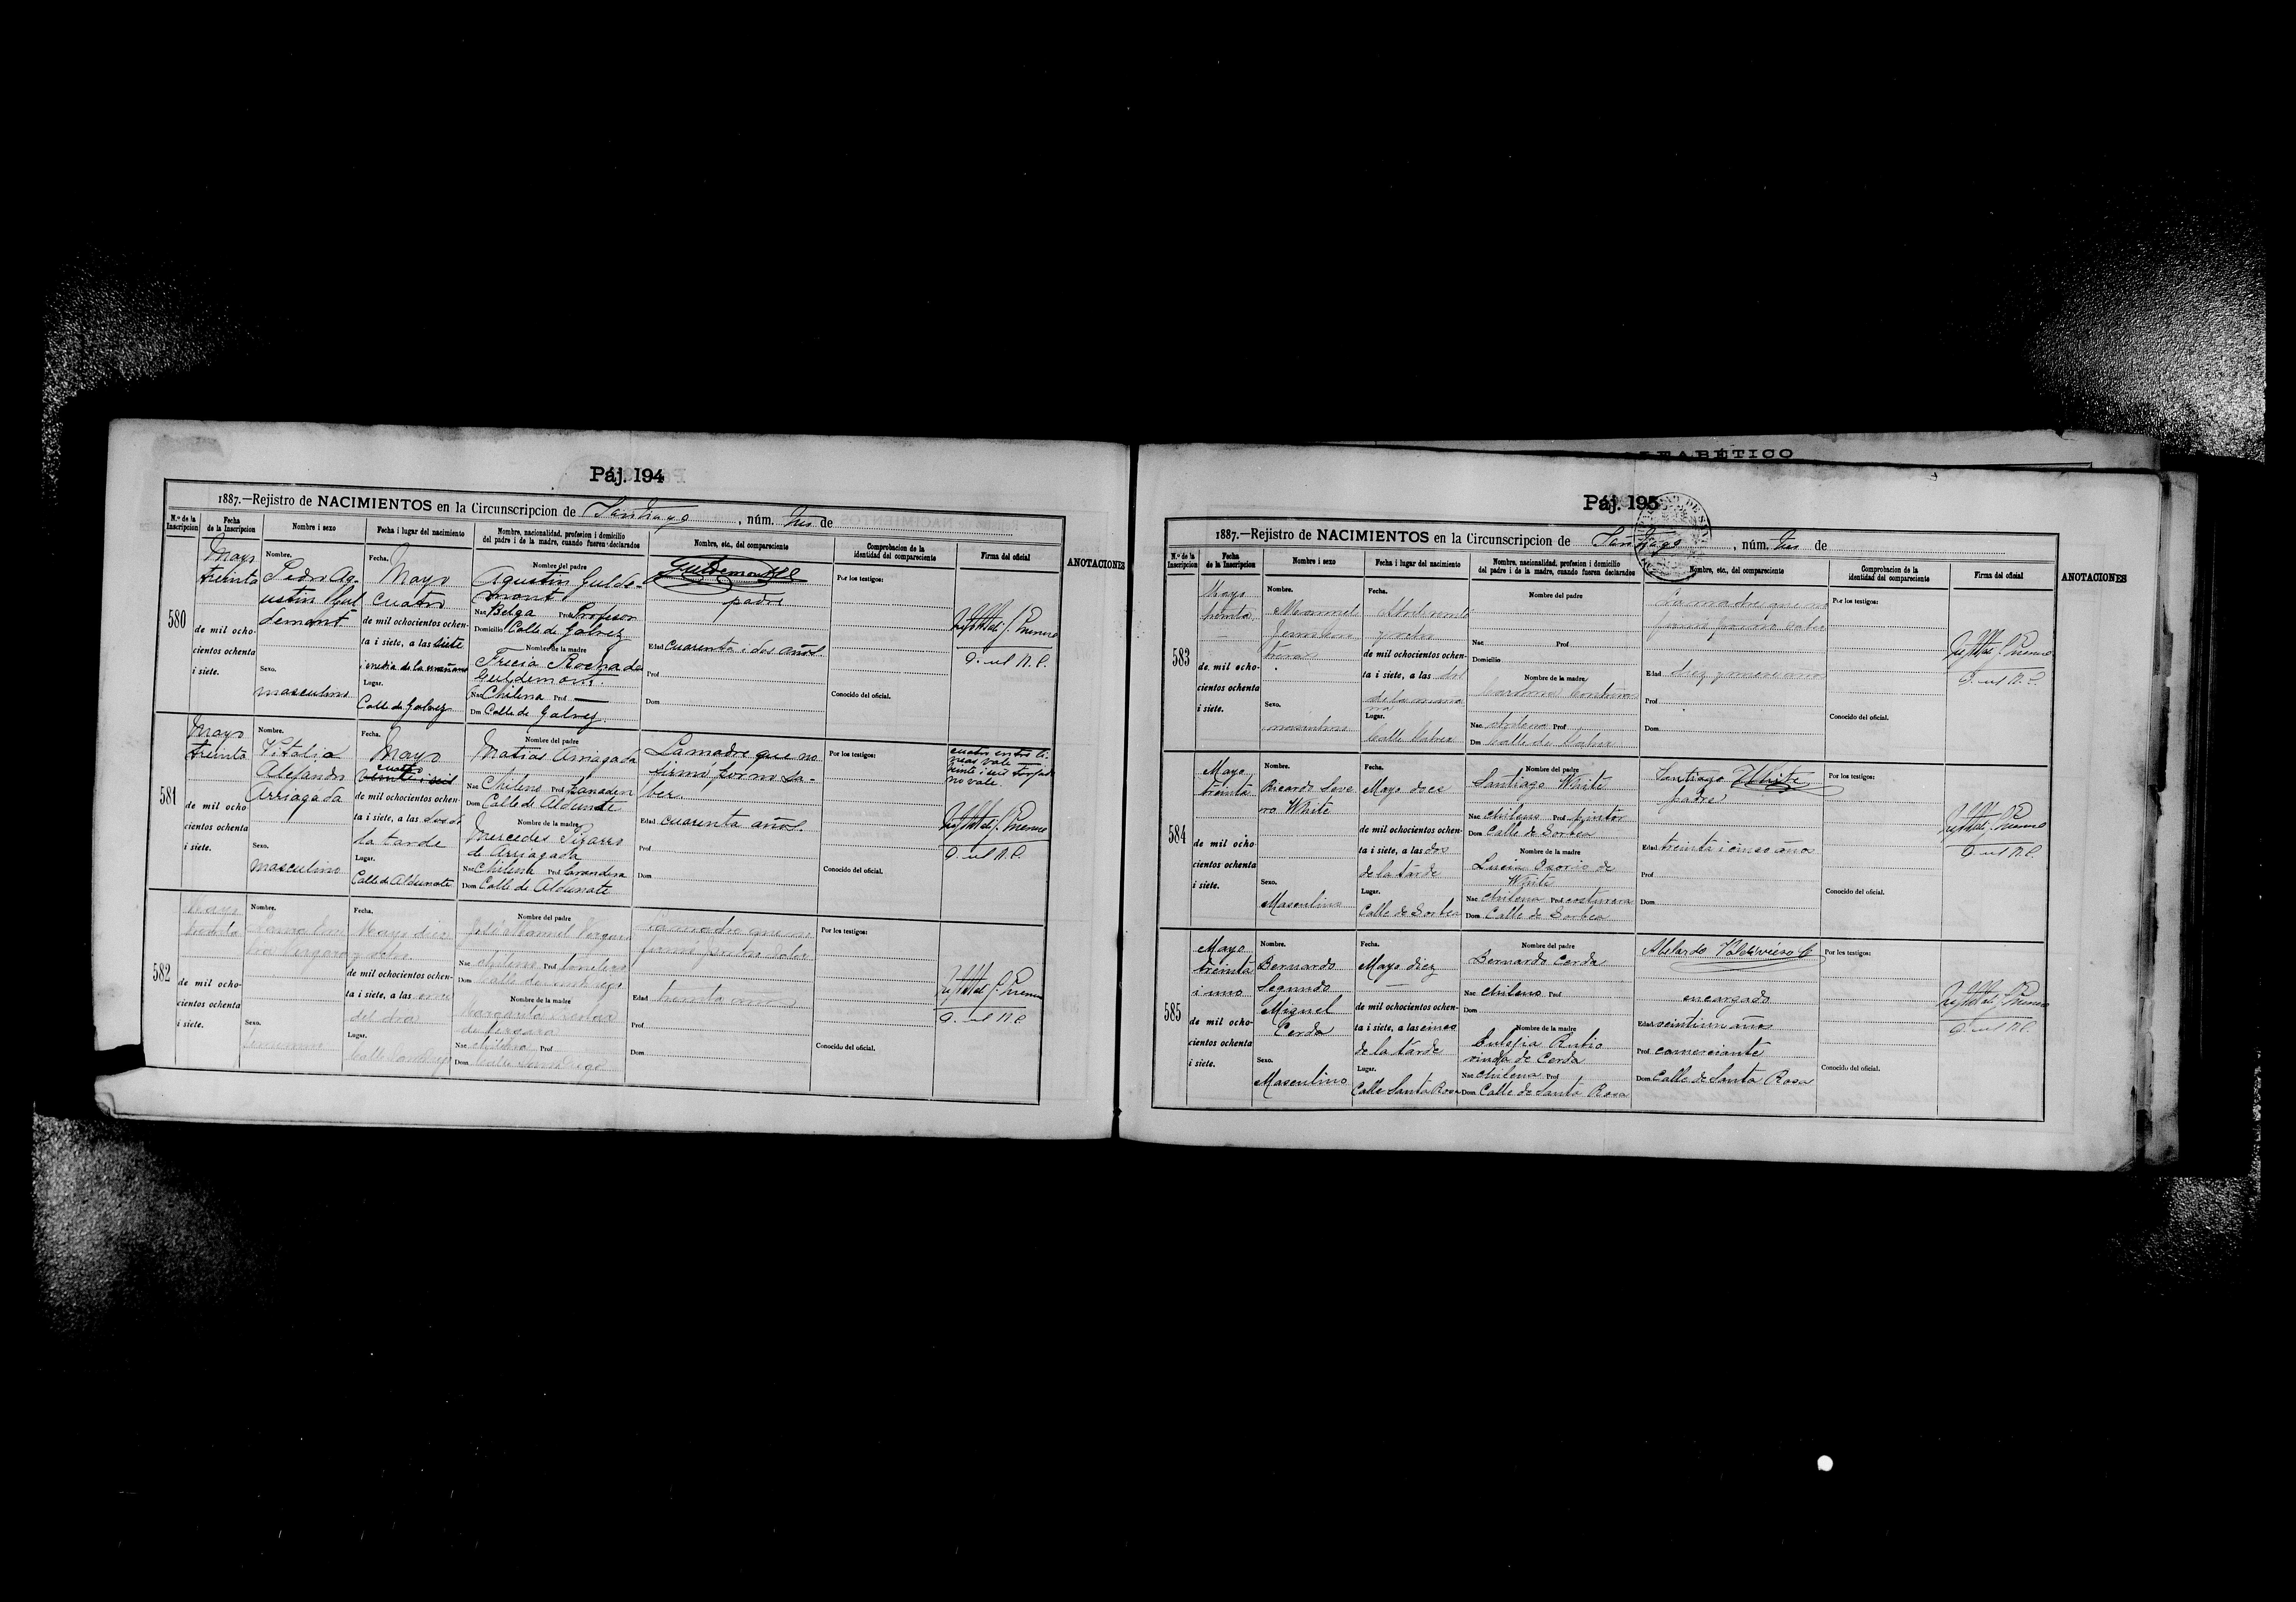 ALFABÉTICO
Páj. 194
1887.—Rejistro de NACIMIENTOS en la Circunscripcion de Santiago, núm. tres de
N.º de la Inscripcion
Fecha de la Inscripcion
Nombre i sexo
Fecha i lugar del nacimiento
Nombre, nacionalidad, profesion i domicilio del padre i de la madre, cuando fueren declarados
Nombre, etc., del compareciente
Comprobacion de la identidad del compareciente
Firma del oficial
ANOTACIONES
580
Mayo
treinta
de mil ocho-
cientos ochenta
i siete.
Nombre.
Pedro Ag-
ustin Gul-
demont
Sexo.
masculino
Fecha.
Mayo
cuatro
de mil ochocientos ochen-
ta i siete, a las siete
i media de la mañana
Lugar.
Calle de Galvez
Nombre del padre
Agustin Gulde-
mont
Nac Belga Prof Profesor
Domicilio Calle de Galvez
Nombre de la madre
Rocha de
Guldemont.
Nac Chilena Prof
Dm Calle de Galvez.
padre
Edad cuarenta i dos años.
Prof
Dom
Por los testigos:
Conocido del oficial.
581
Mayo
treinta
de mil ocho
cientos ochenta
i siete.
Nombre.
Vitalia
Alejandro
Arriagada
Sexo.
Masculino
Fecha.
Mayo
cuatro
veinte i seis
de mil ochocientos ochen-
ta i siete, a las dos de
la tarde
Lugar.
Calle de Aldunate
Nombre del padre
Matias Arriagada
Nac Chileno Prof
Dom Calle de Aldunate
Nombre de la madre
Mercedes Pizarro
de Arriagada
Nac Chilena Prof Lavandera
Dom Calle de Aldunate
La madre que no
firmó por no sa-
ber.
Edad cuarenta años.
Prof
Dom
Por los testigos:
Conocido del oficial.
cuatro entre li-
neas vale
veinte i seis
no vale.
582
Mayo
treinta
de mil ocho-
cientos ochenta
i siete.
Nombre.
Vergara
Sexo.
Femenino
Fecha.
Mayo diez
y ocho
de mil ochocientos ochen-
ta i siete, a las once
del dia
Lugar.
Calle San Diego
Nombre del padre
José Manuel Vergara
Nac chileno Prof
Dom Calle de San Diego
Nombre de la madre
Margarita
de Vergara
Nac chilena Prof
Dom Calle San Diego
La madre que no
firmó por no saber
Edad treinta años
Prof
Dom
Por los testigos:
Conocido del oficial.
Páj. 195
1887.—Rejistro de NACIMIENTOS en la Circunscripcion de Santiago, núm. tres de
N.º de la Inscripcion
Fecha de la Inscripcion
Nombre i sexo
Fecha i lugar del nacimiento
Nombre, nacionalidad, profesion i domicilio del padre i de la madre, cuando fueren declarados
Nombre, etc., del compareciente
Comprobacion de la identidad del compareciente
Firma del oficial
ANOTACIONES
583
Mayo
treinta
de mil ocho-
cientos ochenta
i siete.
Nombre.
Manuel
Sexo.
masculino
Fecha.
Abril veinte
y ocho
de mil ochocientos ochen-
ta i siete, a las dos
de la maña
na
Lugar.
Calle
Nombre del padre
Nac Prof
Domicilio
Nombre de la madre
Nac chilena Prof
Dm Calle de
La madre que no
firmó por no saber
Edad diez y nueve años
Prof
Dom
Por los testigos:
Conocido del oficial.
584
Mayo
treinta
de mil ocho-
cientos ochenta
i siete.
Nombre.
Ricardo Seve
ro White
Sexo.
Masculino
Fecha.
Mayo doce
de mil ochocientos ochen-
ta i siete, a las dos
de la tarde
Lugar.
Calle de
Nombre del padre
Santiago White
Nac chileno Prof pintor
Dom Calle de
Nombre de la madre
Lucia Osorio de
White
Nac chilena Prof costurera
Dom Calle de
Santiago White
padre
Edad treinta i cinco años
Prof
Dom
Por los testigos:
Conocido del oficial.
585
Mayo
treinta
i uno
de mil ocho-
cientos ochenta
i siete.
Nombre.
Bernardo
Segundo
Miguel
Cerda
Sexo.
Masculino
Fecha.
Mayo diez
de mil ochocientos ochen-
ta i siete, a las cinco
de la tarde
Lugar.
Calle Santa Rosa
Nombre del padre
Bernardo Cerda
Nac chileno Prof
Dom
Nombre de la madre
Eulojia Rubio
viuda de Cerda
Nac chilena Prof
Dom Calle de Santa Rosa
Abelardo Valdivieso C
encargado
Edad veintiun años
Prof comerciante
Dom Calle de Santa Rosa
Por los testigos:
Conocido del oficial.